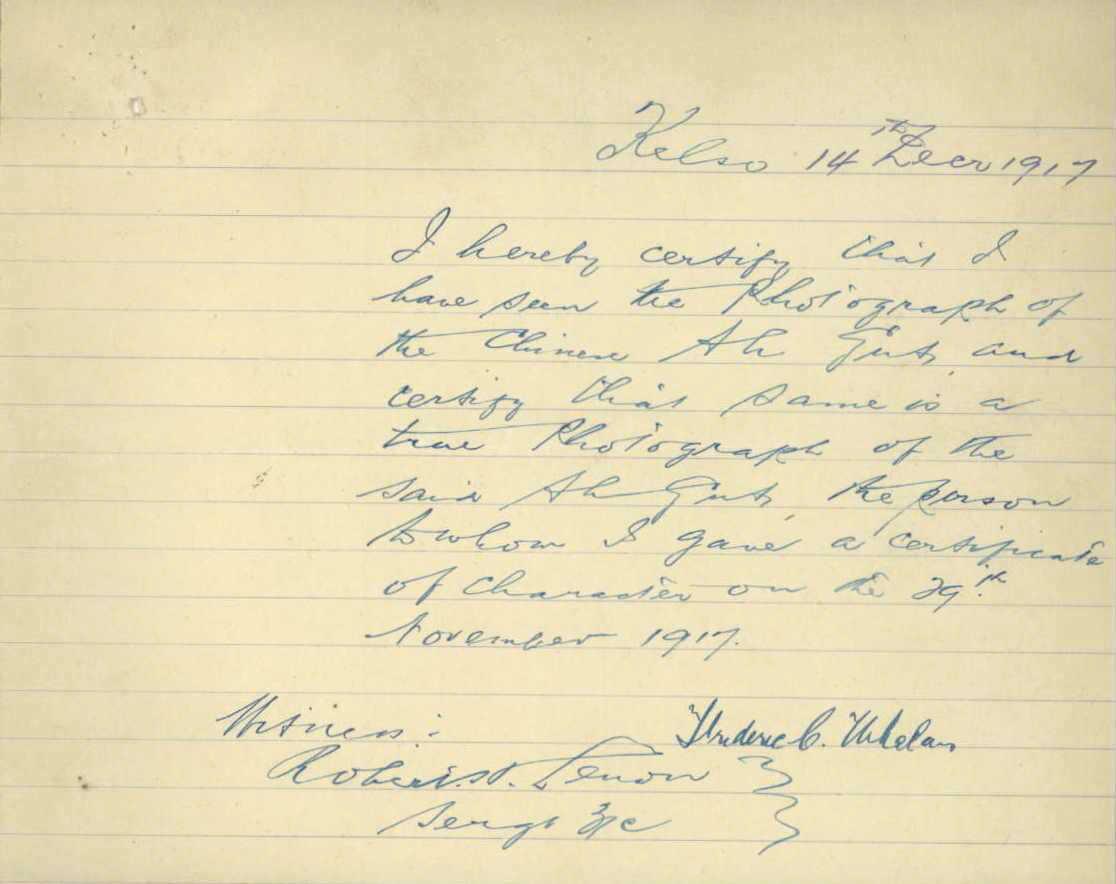 Kelso 14th Decr 1917
I hereby certify that I
have seen the Photograph of
the Chinese Ah and
certify that same is a
true Photograph of the
said Ah the person
to whom I gave a certificate
of character on the 29th
November 1917.
Witness:
Frederic C. Whelan
Robert
Sergt